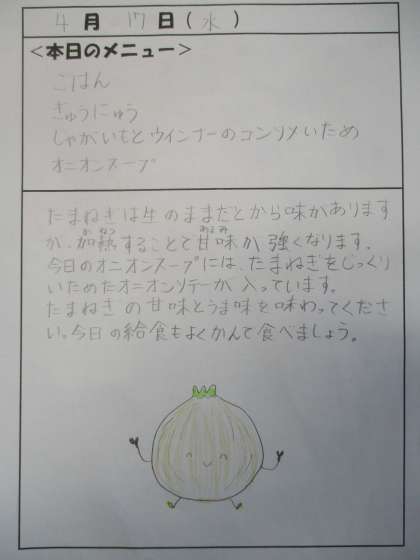 4月17日(水)
<本日のメニュー>
ごはん
ぎゅうにゅう
じゃがいもとウインナーのコンソメいため
オニオンスープ
たまねぎは生のままだとから味があります
が、加熱することで甘味が強くなります。
今日のオニオンスープには、たまねぎをじっくり
いためたオニオンソテーが入っています。
たまねぎの甘味とうま味を味わってくださ
い。今日の給食もよくかんで食べましょう。